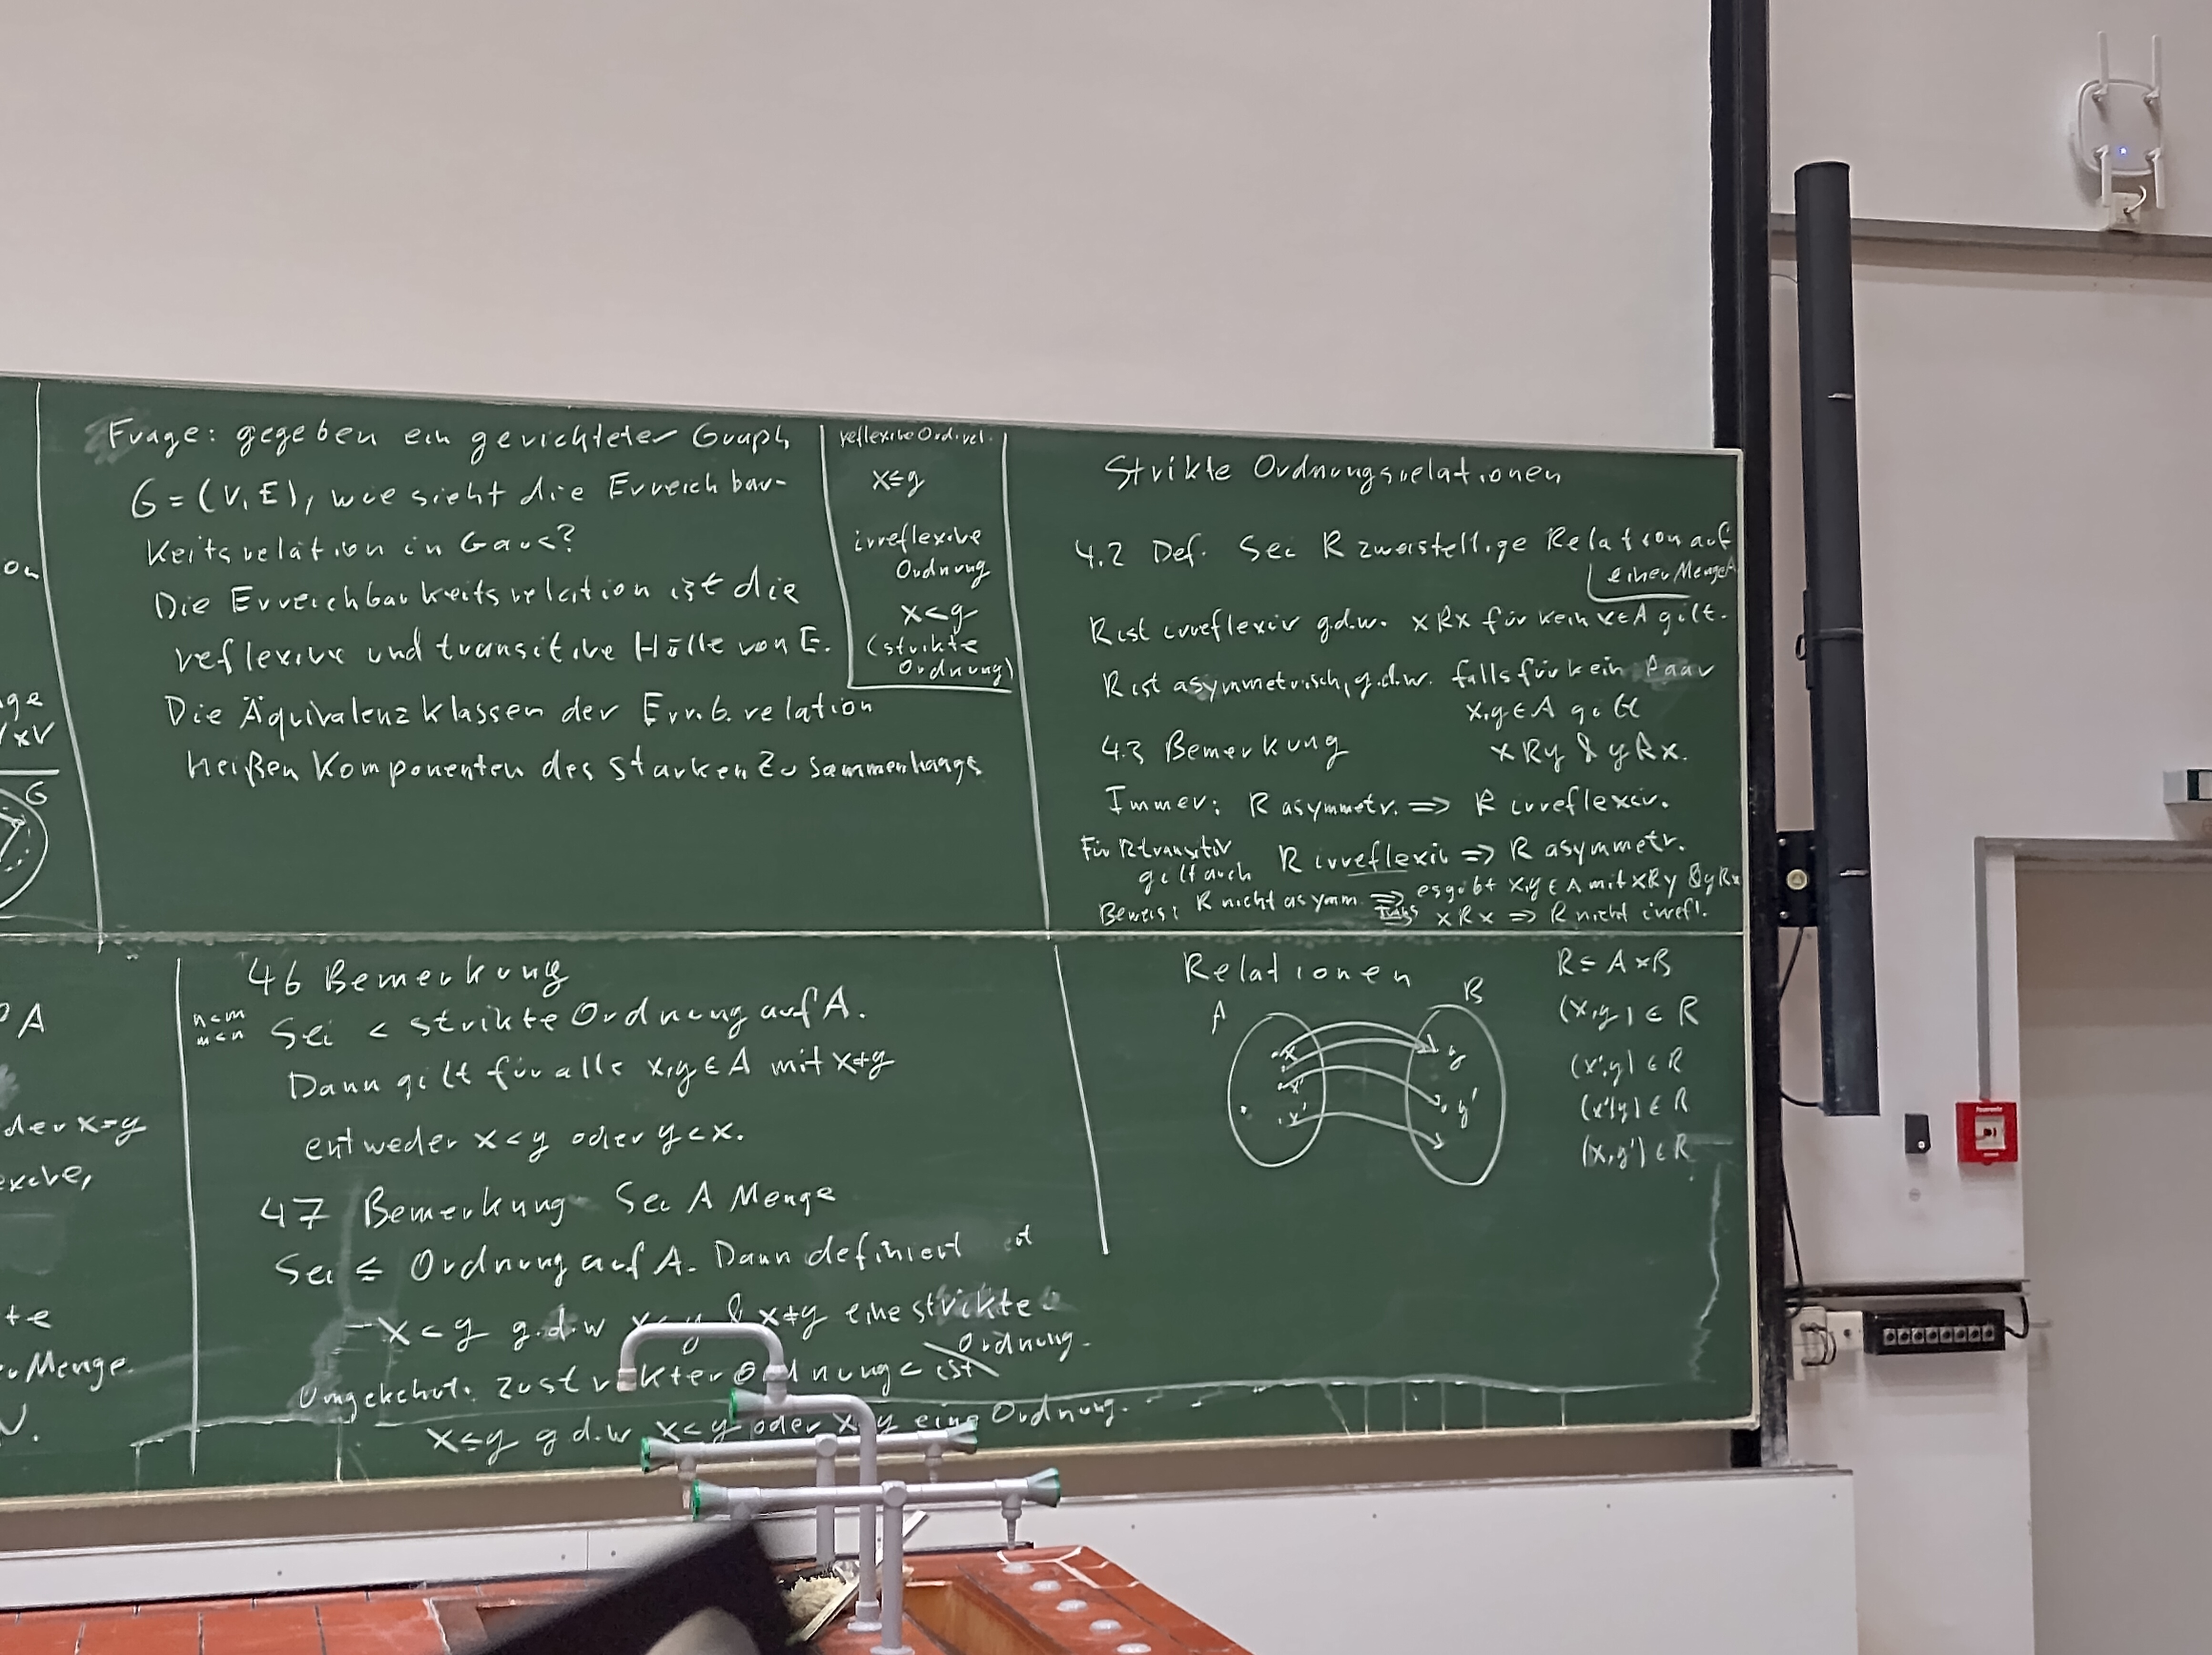 Frage: gegeben ein gerichteter Graph
G = (V, E), wie sieht die Erreichbar-
keitsrelation in G aus?
Die Erreichbarkeitsrelation ist die
reflexive und transitive Hülle von E.
Die Äquivalenzklassen der Err.b. relation
heißen Komponenten des starken Zusammenhangs
reflexive Ord.rel.
x≤y
irreflexive
Ordnung
x<y
(strikte
Ordnung)
Strikte Ordnungsrelationen
4.2 Def. Sei R zweistellige Relation auf
einer Menge A
R ist irreflexiv g.d.w. xRx für kein x∈A gilt.
R ist asymmetrisch, g.d.w. falls für kein Paar
x,y∈A gilt
4.3 Bemerkung xRy & yRx.
Immer: R asymmetr. ⇒ R irreflexiv.
Für R transitiv
gilt auch R irreflexiv ⇒ R asymmetr.
Beweis: R nicht asymm. ⇒ es gibt x,y∈A mit xRy & yRx
⇒ xRx ⇒ R nicht irrefl.
on
ge
V×V
G
A
der x=y
te
Menge.
46 Bemerkung
n<m
m<n
Sei < strikte Ordnung auf A.
Dann gilt für alle x,y∈A mit x≠y
entweder x<y oder y<x.
47 Bemerkung Sei A Menge
Sei ≤ Ordnung auf A. Dann definiert
x<y g.d.w x≤y & x≠y eine strikte
Ordnung.
Umgekehrt: zu strikter Ordnung < ist
x≤y g.d.w x<y oder x=y eine Ordnung.
Relationen
A
B
x
x'
x'
y
y'
R ⊆ A×B
(x,y) ∈ R
(x',y) ∈ R
(x',y') ∈ R
(x,y') ∈ R
Feuerwehr